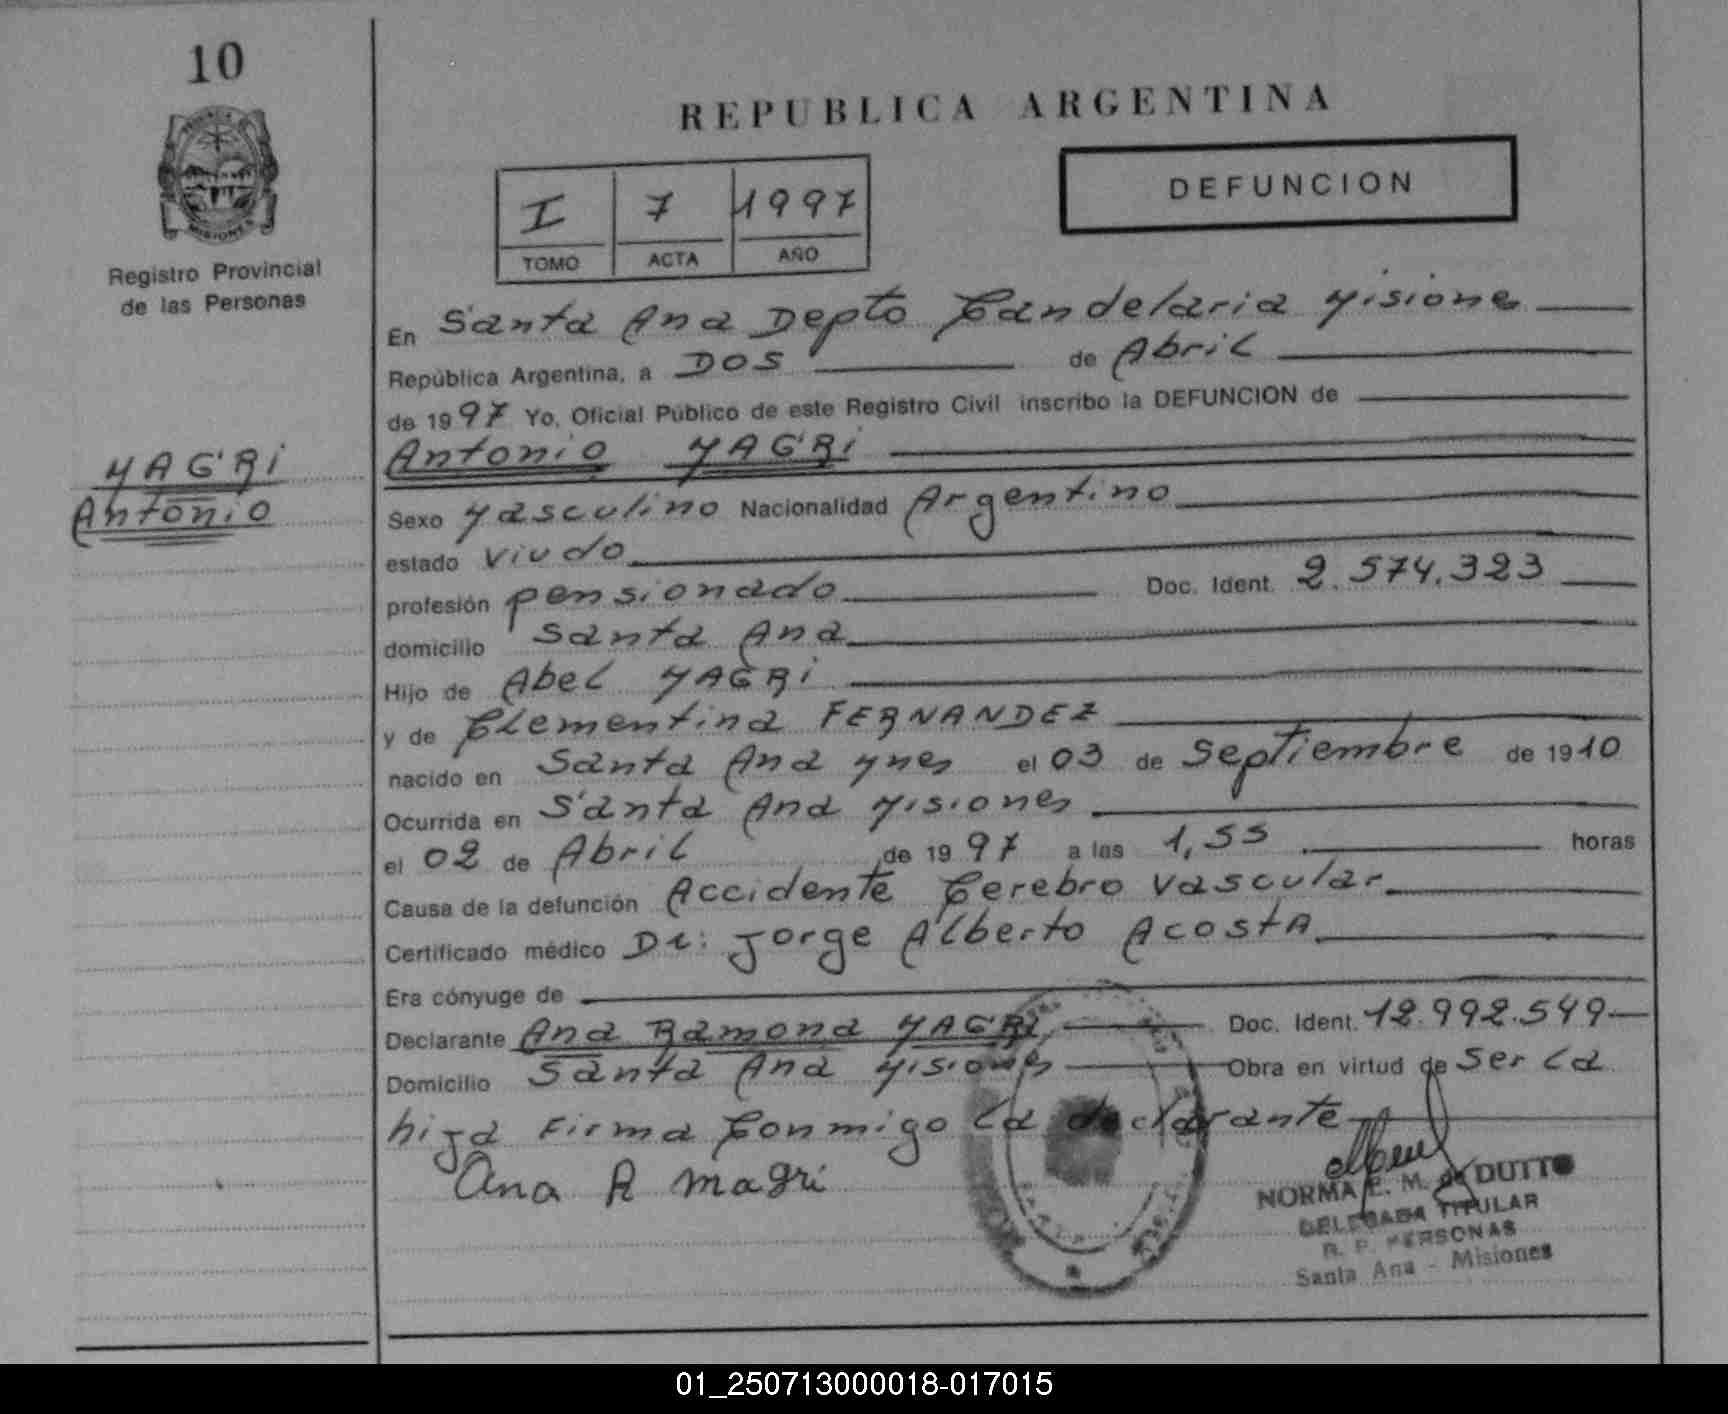 10
MISIONES
Registro Provincial
de las Personas
MAGRI
Antonio
REPUBLICA ARGENTINA
I 7 1997
TOMO ACTA AÑO
DEFUNCION
En Santa Ana Depto Candelaria Misiones
República Argentina, a DOS de Abril
de 1997 Yo, Oficial Público de este Registro Civil inscribo la DEFUNCION de
Antonio MAGRI
Sexo Masculino Nacionalidad Argentino
estado viudo
profesión pensionado Doc. Ident. 2.574.323
domicilio Santa Ana
Hijo de Abel MAGRI
y de Clementina FERNANDEZ
nacido en Santa Ana Mnes el 03 de Septiembre de 1910
Ocurrida en Santa Ana Misiones
el 02 de Abril de 1997 a las 1,55 horas
Causa de la defunción Accidente Cerebro vascular
Certificado médico Dr: Jorge Alberto Acosta
Era cónyuge de
Declarante Ana Ramona MAGRI Doc. Ident. 12.992.549
Domicilio Santa Ana Misiones Obra en virtud de Ser La
hija Firma Conmigo La declarante
Ana R Magri
NORMA E. M. DUTTO
DELEGADA TITULAR
R. P. PERSONAS
Santa Ana - Misiones
01_250713000018-017015